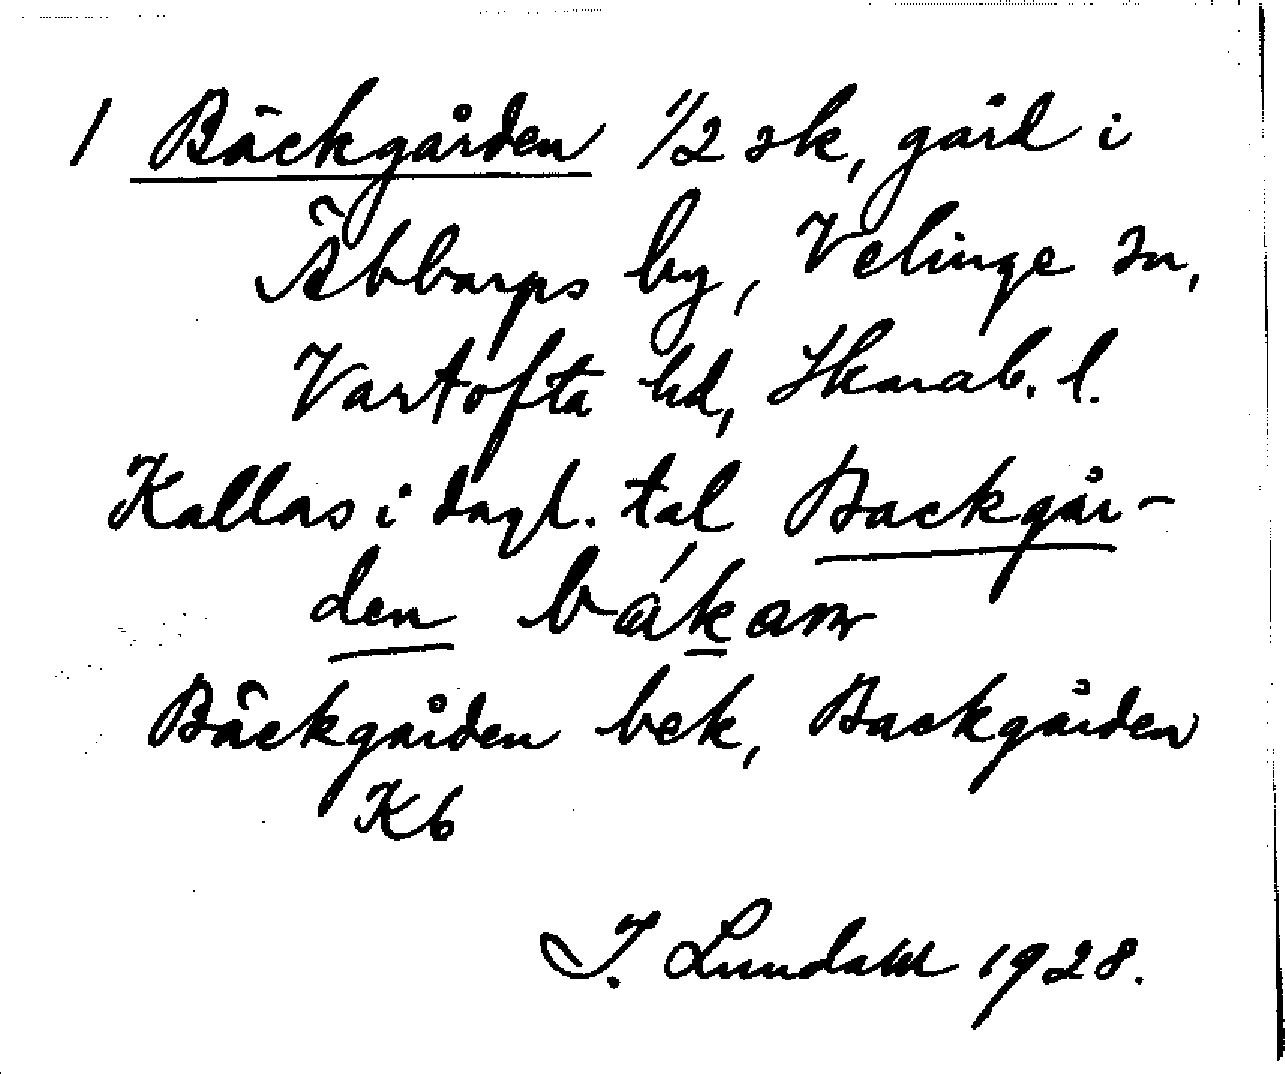 1 Bäckgården 1/2 sk, gård i
Äbbarps by, Velinge sn,
Vartofta hd, Skarab. l.
Kallas i dagl. tal Backgår-
den
Bäckgården bek, Backgården
Kb
I. Lundahl 1928.